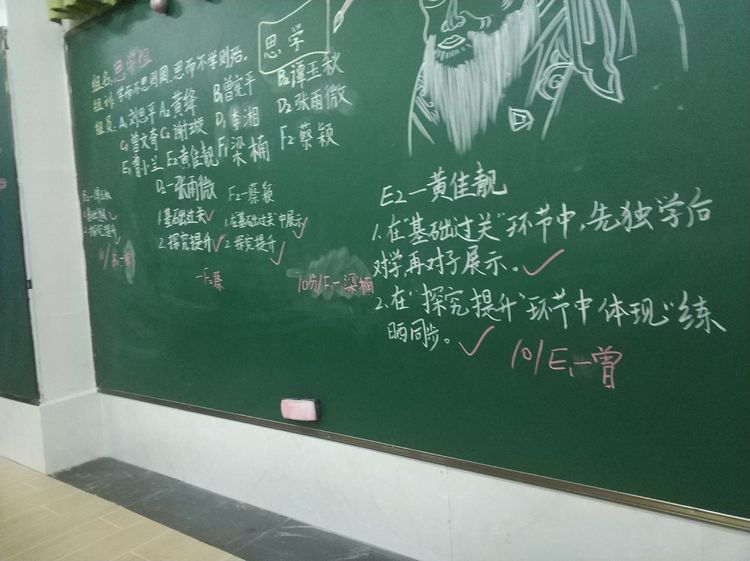 思学
组名:思学组
组训:学而不思则罔,思而不学则殆。
组员:A1刘思平 A2黄绛 B1曾定平 B2谭玉秋
C1曾文奇 C2谢璇 D1李湘 D2张雨微
E1曾小兰 E2黄佳靓 F1梁楠 F2蔡颖
D2一张雨微 F2一蔡颖
1.基础过关✓ 1.在"基础过关"中展示✓
2.探究提升✓ 2.探究提升✓
一F2蔡
10分/F1一梁楠
E2一黄佳靓
1.在"基础过关"环节中,先独学后
对学再对子展示。✓
2.在"探究提升"环节中体现"练
晒同步。✓
10/E1一曾